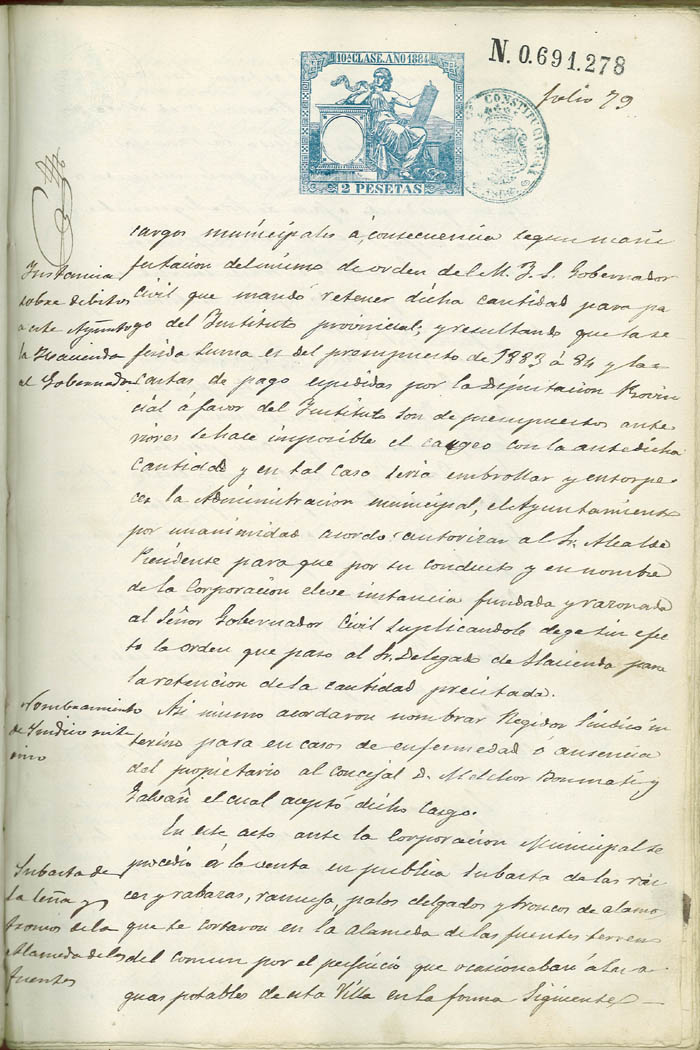 10ª CLASE. AÑO 1884
2 PESETAS
N. 0.691.278
CONSTITUCIONAL
folio 79
cargos municipales á consecuencia segun mani
festacion del mismo de orden del M. I. S. Gobernador
civil que mandó retener dicha cantidad para pa
go del Instituto provincial; y resultando que la re
ferida suma es del presupuesto de 1883 á 84 y las
cartas de pago expedidas por la Diputacion Provin
cial á favor del Instituto son de presupuestos ante
riores se hace imposible el cargeo con la antedicha
cantidad y en tal caso seria embrollar y entorpe
cer la Administracion municipal, el Ayuntamiento
por unanimidad acordo autorizar al Sr. Alcalde
Presidente para que por su conducto y en nombre
de la Corporacion eleve instancia fundada y razonada
al Señor Gobernador Civil suplicandole dege sin efec
to la orden que paso al Sr. Delegado de Hacienda para
la retencion de la cantidad precitada.
Asi mismo acordaron nombrar Regidor Sindico in
terino para en casos de enfermedad ó ausencia
del propietario al concejal D. Melchor Bonmatí y
Galvañ el cual aceptó dicho cargo.
En este acto ante la Corporacion Municipal se
procedio á la venta en publica subasta de las rai
ces y rabazas, ramuja, palos delgados y troncos de alamo,
que se cortaron en la Alameda de las fuentes terreno
del comun por el perjuicio que ocasionaban á las a
guas potables de esta Villa en la forma siguiente
Instancia
sobre debitos
a este Ayuntº
la Hacienda
al Gobernador
Nombramiento
de Sindico inte
rino
Subasta de
la leña y
troncos de la
Alameda de las
fuentes